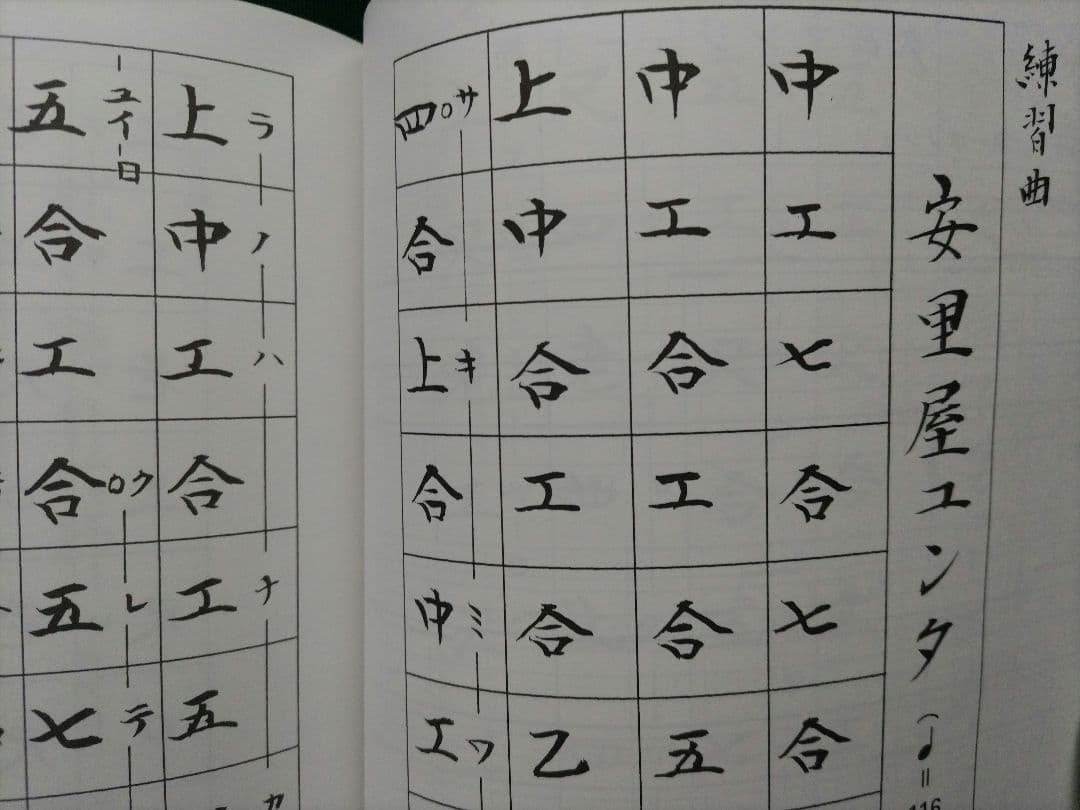 練習曲
安里屋ユンタ (♩=116
中工七合七合
中工合工合五
上中合工合乙
四合上合中工
サ○ーキーミーワー
上中工合工五
ラーノーハーナー
五合工合五七
ーユイー日 ク○ーレーテー